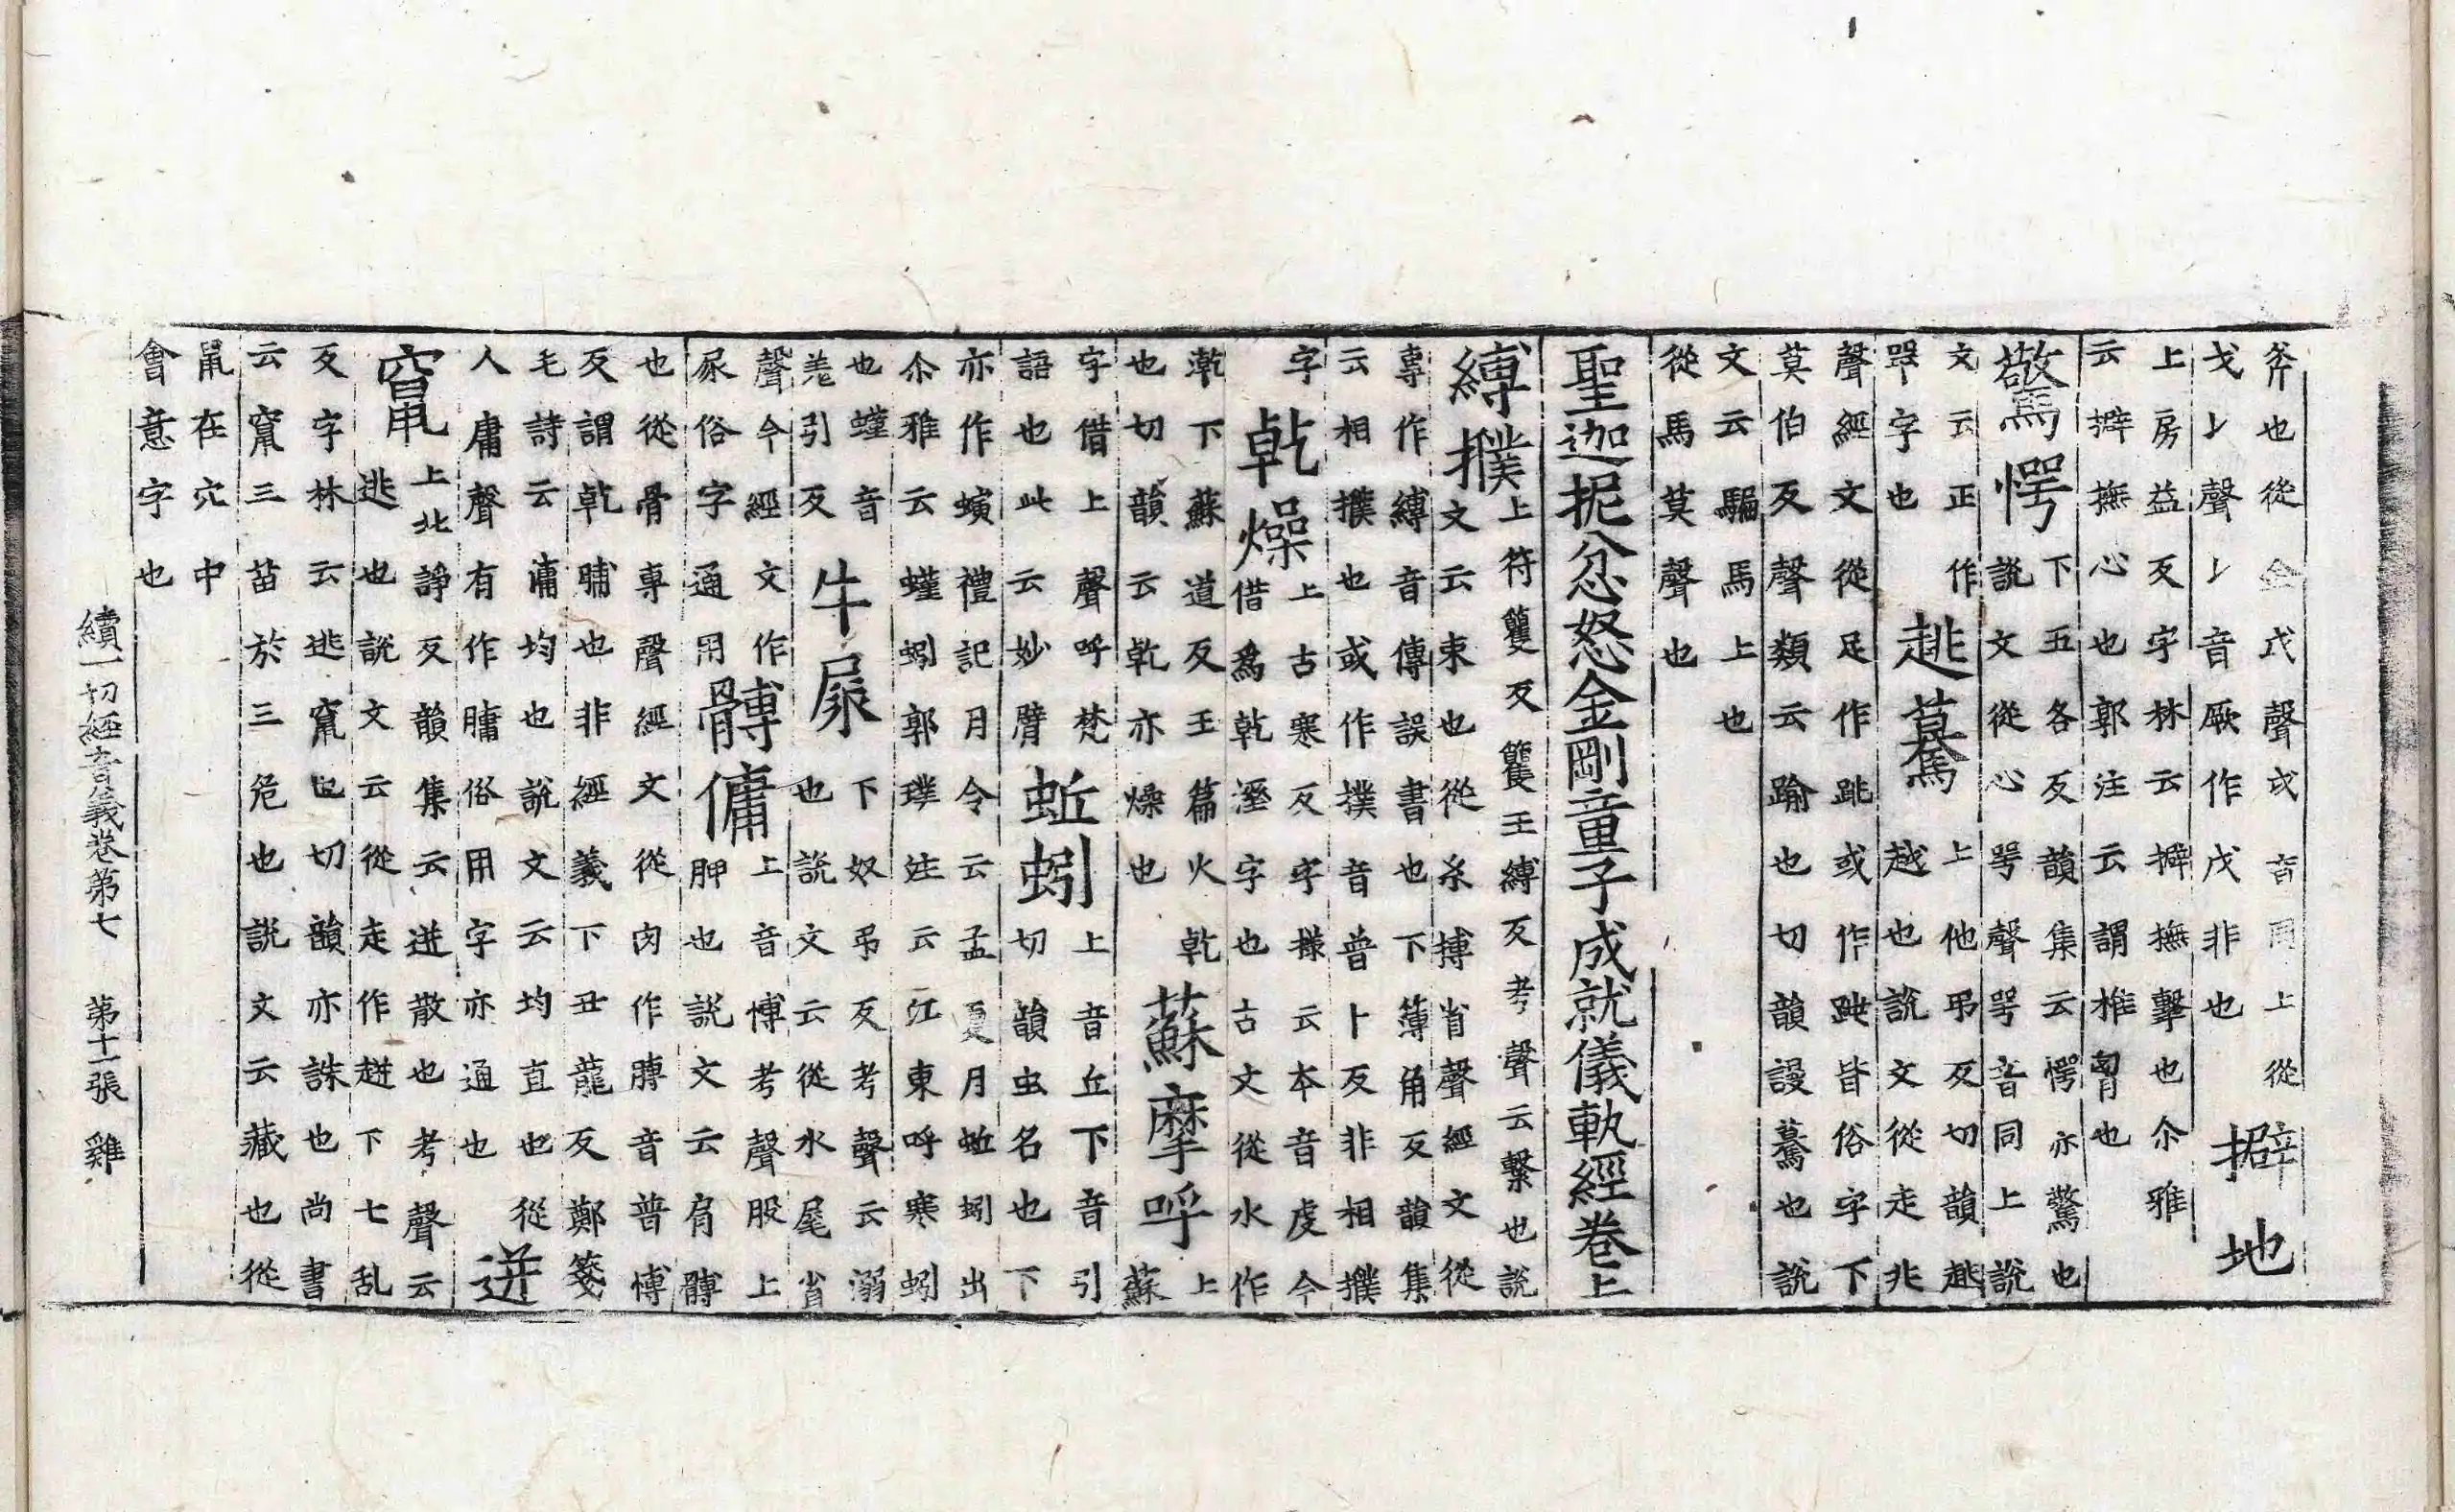 斧也從金戉聲戉音同上從
戈𠄌聲𠄌音厥作戊非也
擗地
上房益反字林云擗撫擊也尒雅
云擗撫心也郭注云謂椎胷也
驚愕
下五各反韻集云愕亦驚也
說文從心咢聲咢音同上說
文云正作
咢字也
趒驀
上他弔反切韻趒
越也說文從走兆
聲經文從足作跳或作趠皆俗字下
莫伯反聲類云踰也切韻謾驀也說
文云驅馬上也
從馬莫聲也
聖迦抳忿怒金剛童子成就儀軌經卷上
縛撲
上符籰反籰王縛反考聲云繫也說
文云束也從糸搏省聲經文從
專作縳音傳誤書也下簿角反韻集
云相撲也或作撲音普卜反非相撲
字
乾燥
上古寒反字㨾云本音虔今
借爲乾溼字也古文從水作
漧下蘇道反王篇火乾
也切韻云乾亦燥也
蘇摩呼
上
蘇
字借上聲呼梵
語也此云妙臂
蚯蚓
上音丘下音引
切韻虫名也下
亦作螾禮記月令云孟夏月蚯蚓出
尒雅云螼蚓郭璞注云江東呼寒蚓
也螼音
羌引反
牛㞙
下奴弔反考聲云溺
也說文云從水尾省
聲今經文作
尿俗字通用
髆傭
上音博考聲股上
胛也說文云肩髆
也從骨專聲經文從肉作膊音普博
反謂乾脯也非經義下丑龍反鄭箋
毛詩云傭均也說文云均直也從
人庸聲有作𦟛俗用字亦通也
迸
竄
上北諍反韻集云迸散也考聲云
逃也說文云從走作趚下七乱
反字林云逃竄也切韻亦誅也尚書
云竄三苗於三危也說文云藏也從
鼠在穴中
會意字也
續一切經音義卷第七 第十二張 雞